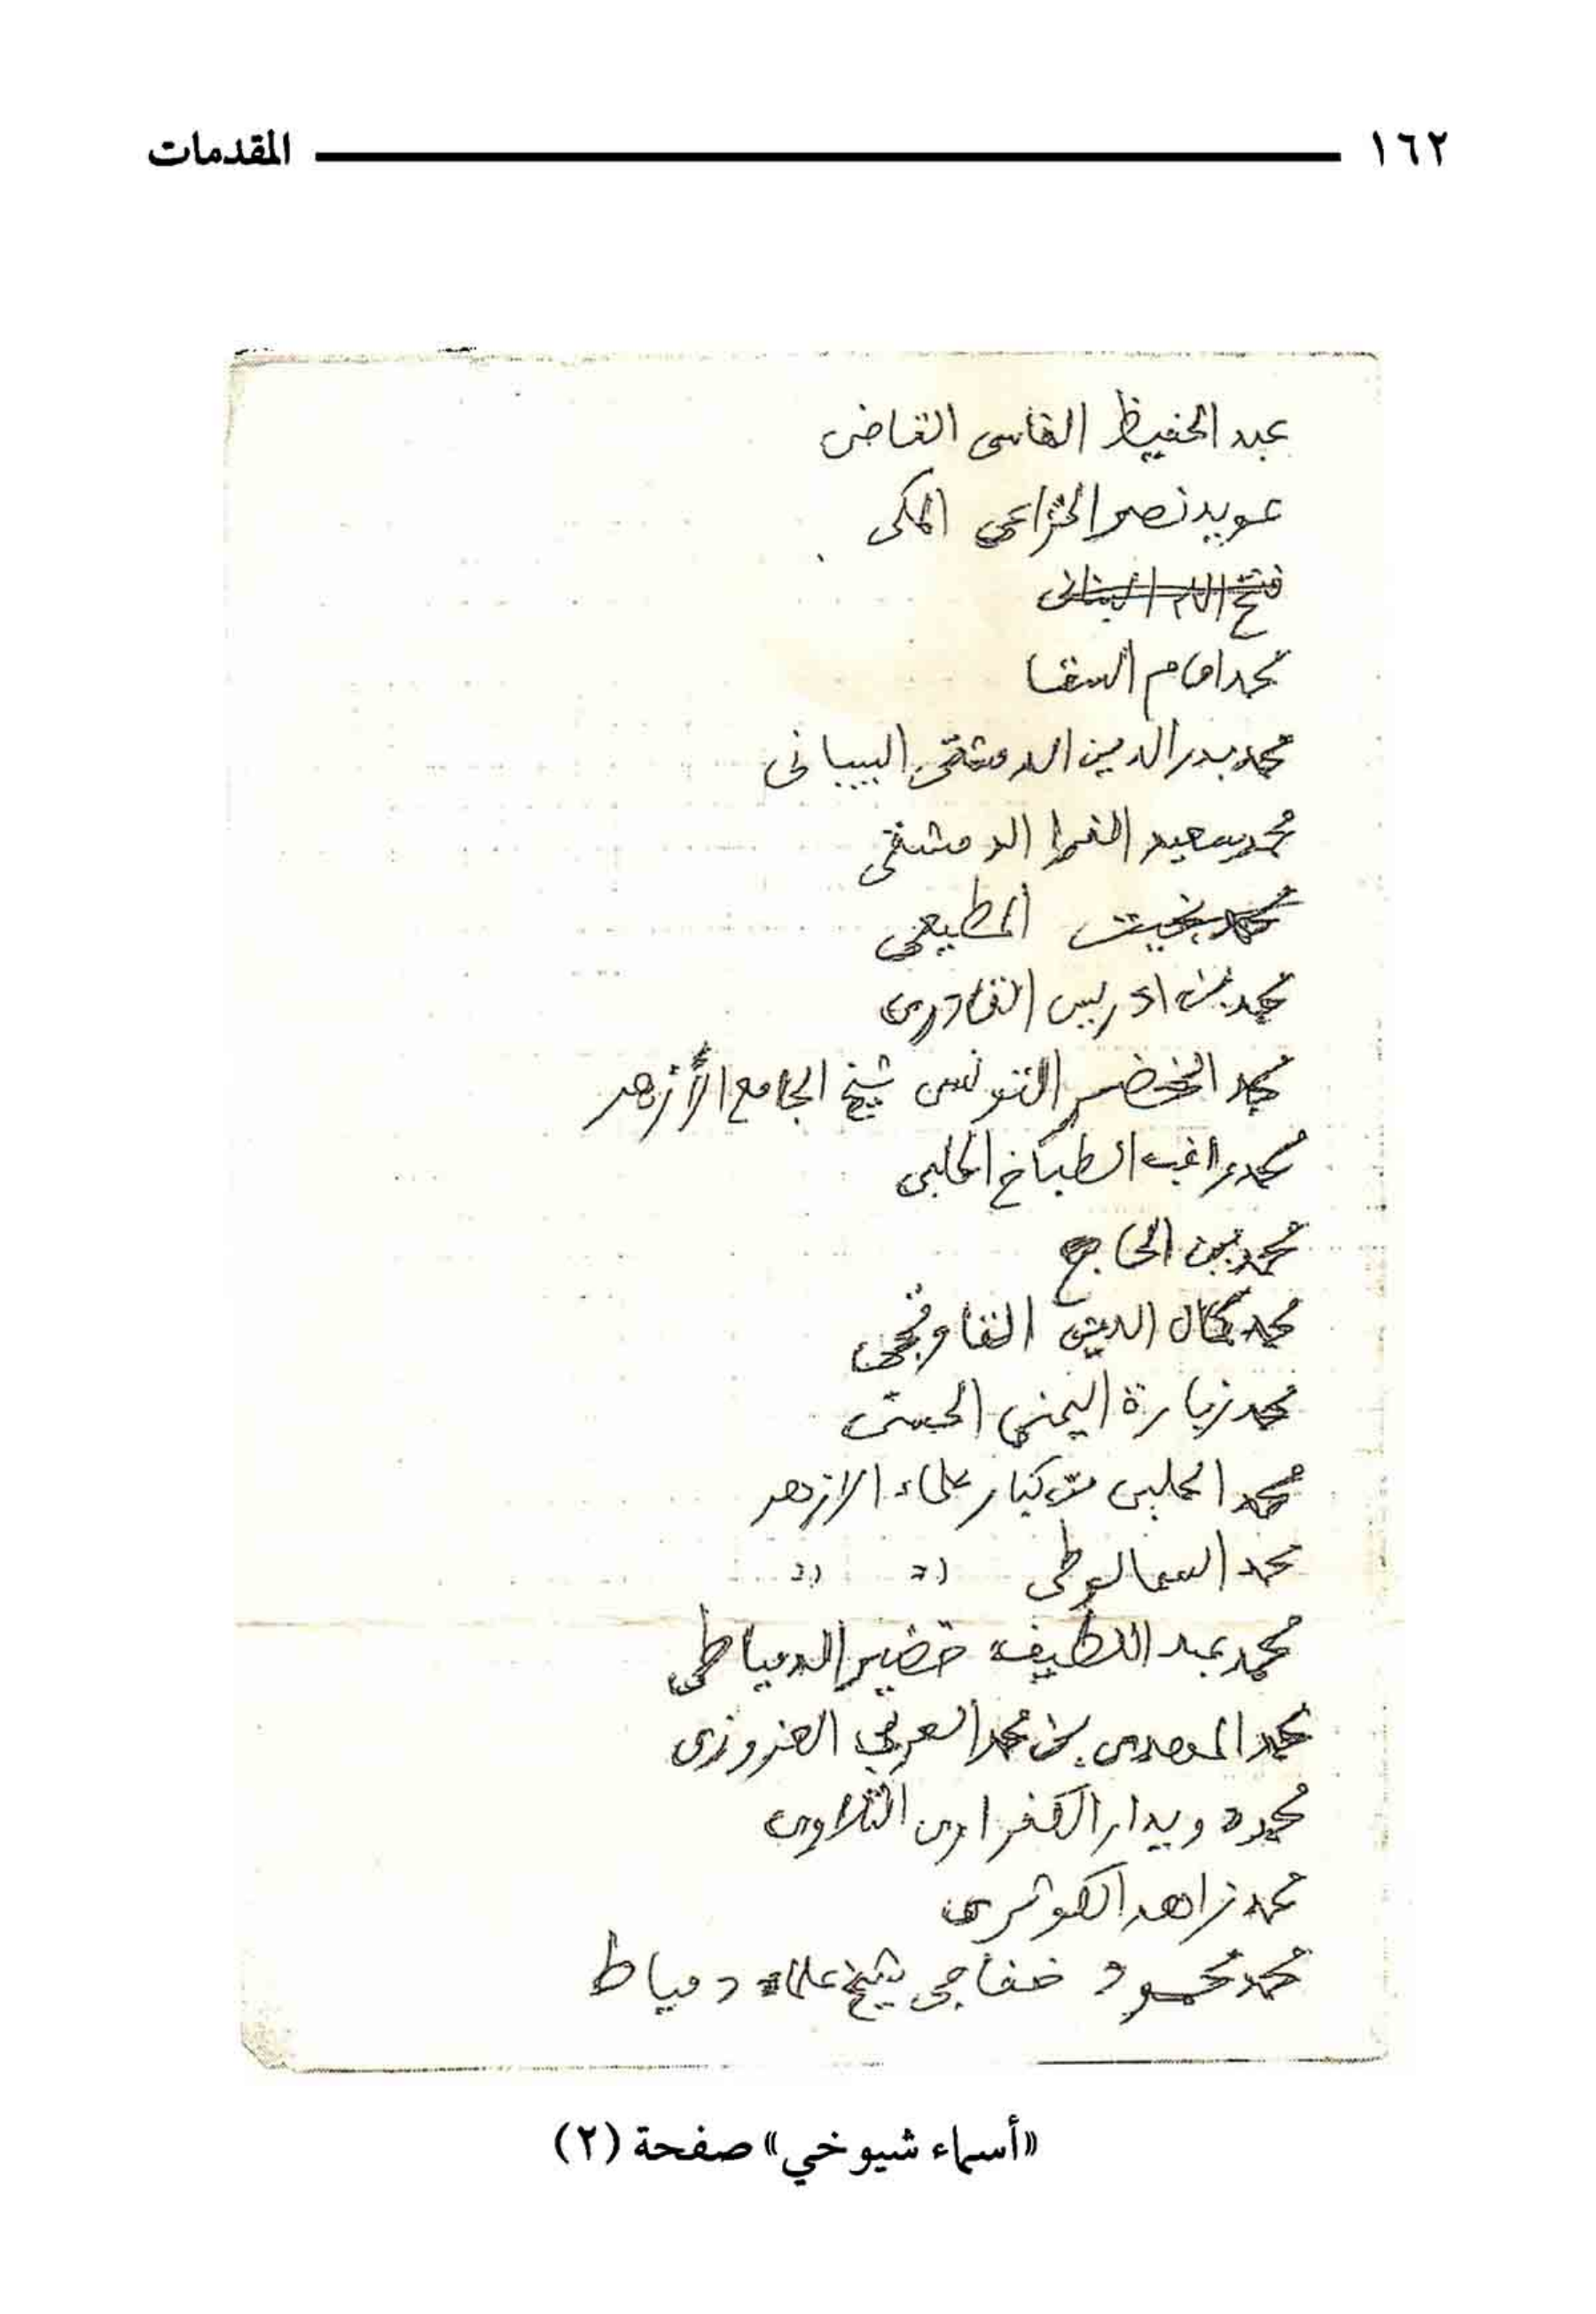 ١٦٢ المقدمات
عبد الحفيظ الفاسى القاضى
عويد نصر الخزاعي المكى
فتح الله البنانى
محمد امام السقا
محمد بدر الدين الدمشقى البيبانى
محمد سعيد الفرا الدمشقى
محمد بخيت المطيعي
محمد بن ادريس القادرى
محمد الخضر التونسى شيخ الجامع الأزهر
محمد راغب الطباخ الحلبى
محمد بن الحاج
محمد كمال الدين القاوقجي
محمد زبارة اليمني الحسنى
محمد الحلبى من كبار علماء الازهر
محمد السمالوطى " "
محمد عبد اللطيف خضير الدمياطي
محمد المهدى بن محمد العربي العزوزى
محمد دويدار الكفراوى التلاوى
محمد زاهد الكوثرى
محمد محمود خفاجى شيخ علماء دمياط
«أسماء شيوخي» صفحة (٢)